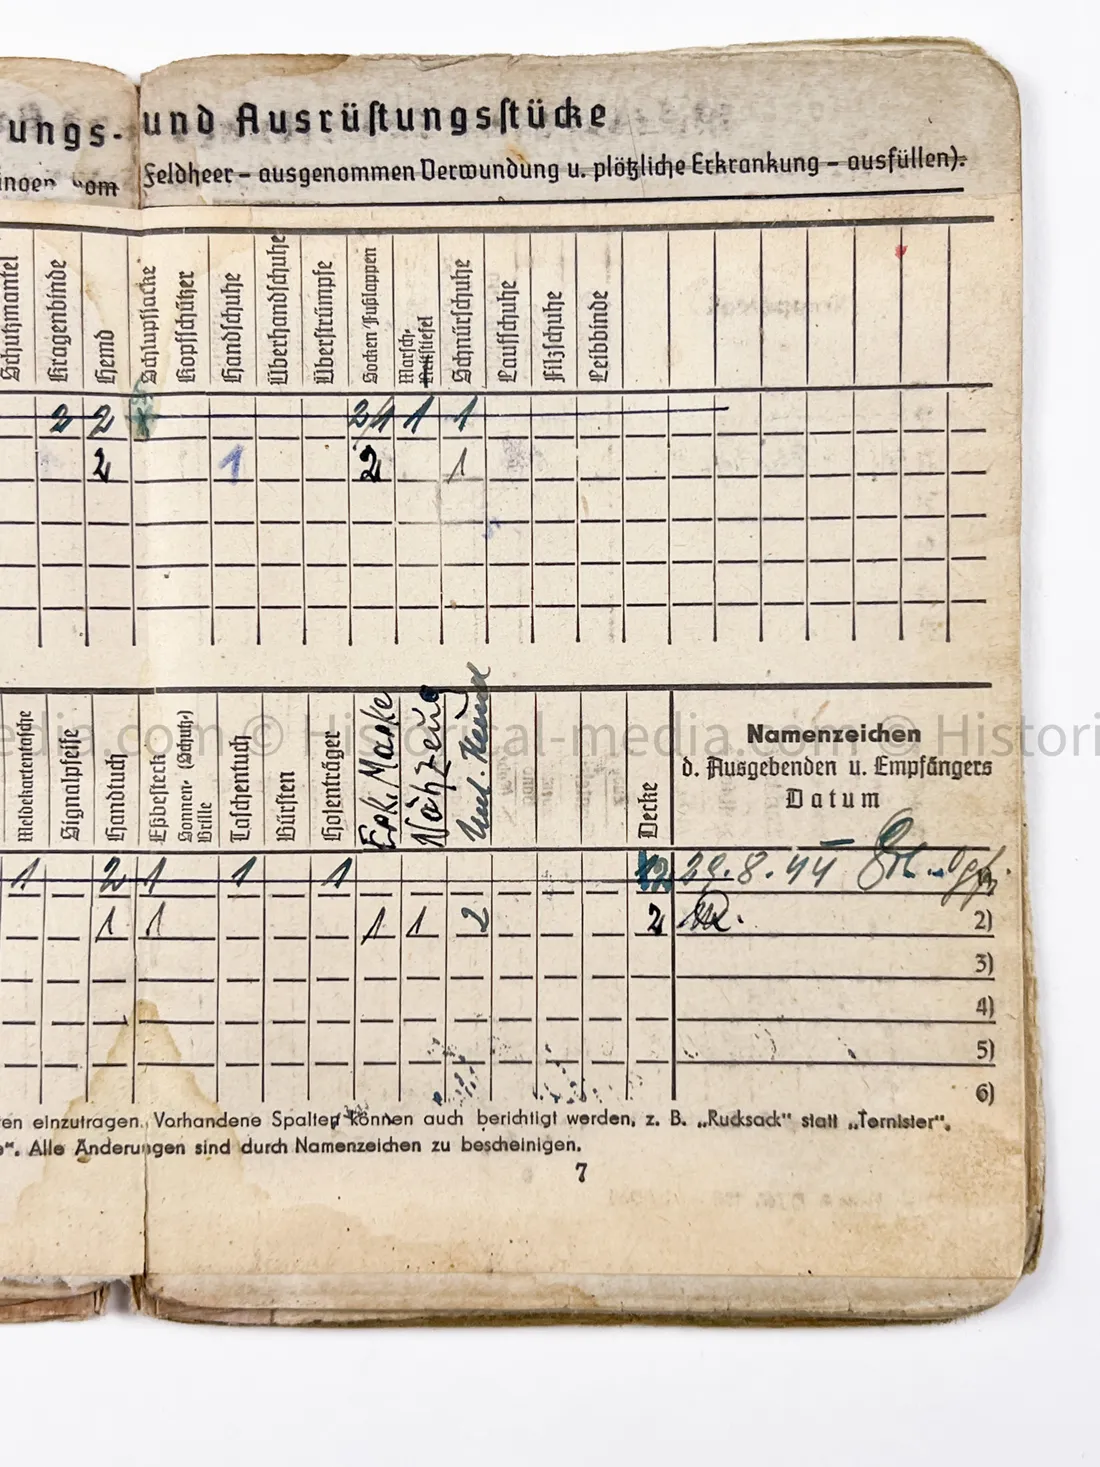 ungs- und Ausrüstungsstücke
vom Feldheer – ausgenommen Verwundung u. plötzliche Erkrankung – ausfüllen).
Schutzmantel
Kragenbinde
Hemd
Schlupfjacke
Kopfschützer
Handschuhe
Überhandschuhe
Überstrümpfe
Socken/Fußlappen
Marsch- Reitstiefel
Schnürschuhe
Laufschuhe
Filzschuhe
Leibbinde
2 2 2/1 1 1
2 1 2 1
Meldekartentasche
Signalpfeife
Handtuch
Eßbesteck
Sonnen- (Schutz-) Brille
Taschentuch
Bürsten
Hosenträger
Nähzeug
Unt. Hemd
Decke
Namenzeichen
d. Ausgebenden u. Empfängers
Datum
1 2 1 1 1 2 29.8.44
1 1 1 1 2 2 2)
3)
4)
5)
6)
en einzutragen. Vorhandene Spalten können auch berichtigt werden, z. B. „Rucksack" statt „Tornister",
". Alle Änderungen sind durch Namenzeichen zu bescheinigen.
7
edia.com © Historical-media.com © Histori